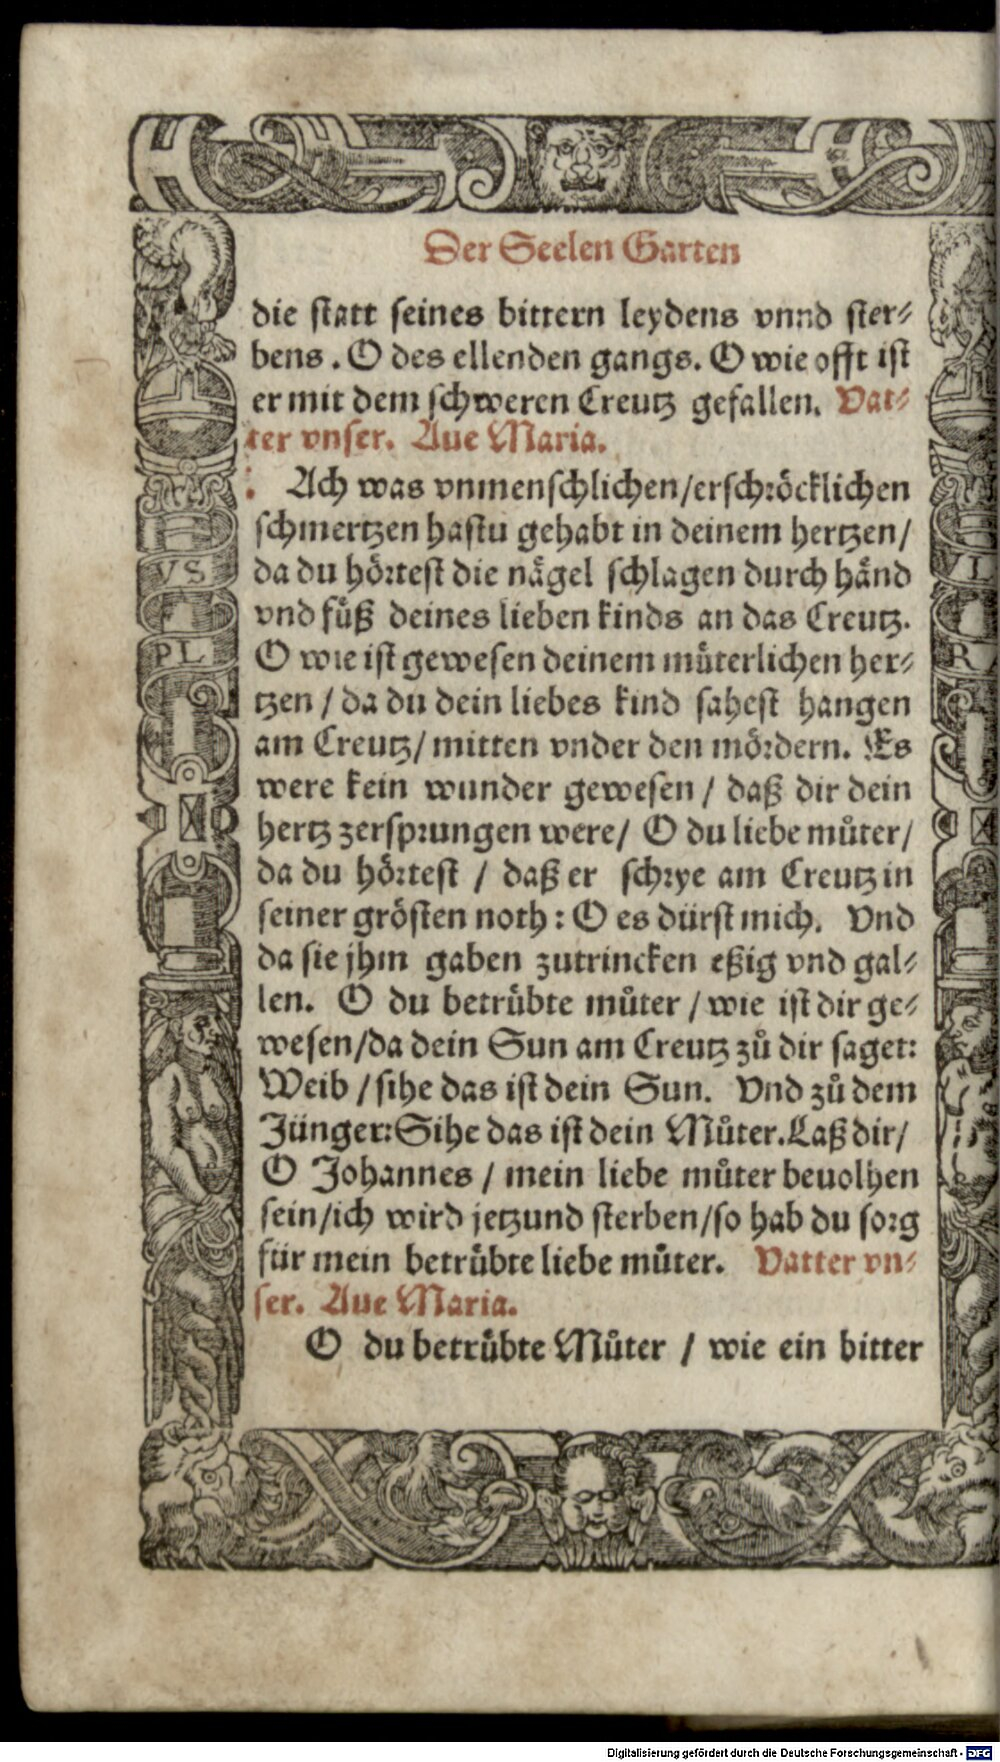 Der Seelen Garten
die statt seines bittern leydens vnnd ster⸗
bens. O des ellenden gangs. O wie offt ist
er mit dem schweren Creutz gefallen. Vat⸗
ter vnser. Aue Maria.
Ach was vnmenschlichen/erschröcklichen
schmertzen hastu gehabt in deinem hertzen/
da du hörtest die nägel schlagen durch händ
vnd füß deines lieben kinds an das Creutz.
O wie ist gewesen deinem müterlichen her⸗
tzen / da du dein liebes kind sahest hangen
am Creutz/ mitten vnder den mördern. Es
were kein wunder gewesen / daß dir dein
hertz zersprungen were/ O du liebe můter/
da du hörtest / daß er schrye am Creutz in
seiner grösten noth: O es dürst mich. Vnd
da sie jhm gaben zutrincken eßig vnd gal⸗
len. O du betrübte můter / wie ist dir ge⸗
wesen/da dein Sun am Creutz zů dir saget:
Weib / sihe das ist dein Sun. Vnd zů dem
Jünger: Sihe das ist dein Můter. Laß dir/
O Johannes / mein liebe můter beuolhen
sein/ich wird jetzund sterben/so hab du sorg
für mein betrübte liebe můter. Vatter vn⸗
ser. Aue Maria.
O du betrübte Můter / wie ein bitter
VS
PL
VI
R
Digitalisierung gefördert durch die Deutsche Forschungsgemeinschaft - DFG